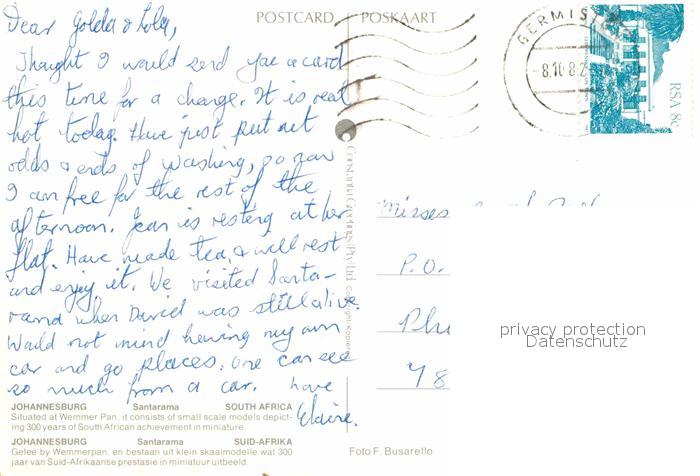 POSTCARD POSKAART
Dear Golda & Lola,
Thought I would send you a card
this time for a change. It is real
hot today. Have just put out
odds & ends of washing, so now
I am free for the rest of the
afternoon. Jean is resting at her
flat. Have made tea, & will rest
and enjoy it. We visited Santa-
rama when David was still alive.
Would not mind having my own
car and go places. One can see
so much from a car. Love
Elaine.
GERMIS
8.10.82
RSA 8c
Constantia Greetings (Pty) Ltd.
Misses
P.O.
48
privacy protection
Datenschutz
JOHANNESBURG Santarama SOUTH AFRICA
Situated at Wemmer Pan, it consists of small scale models depict-
ing 300 years of South African achievement in miniature.
JOHANNESBURG Santarama SUID-AFRIKA
Geleë by Wemmerpan, en bestaan uit klein skaalmodelle wat 300
jaar van Suid-Afrikaanse prestasie in miniatuur uitbeeld.
Foto F. Busarello